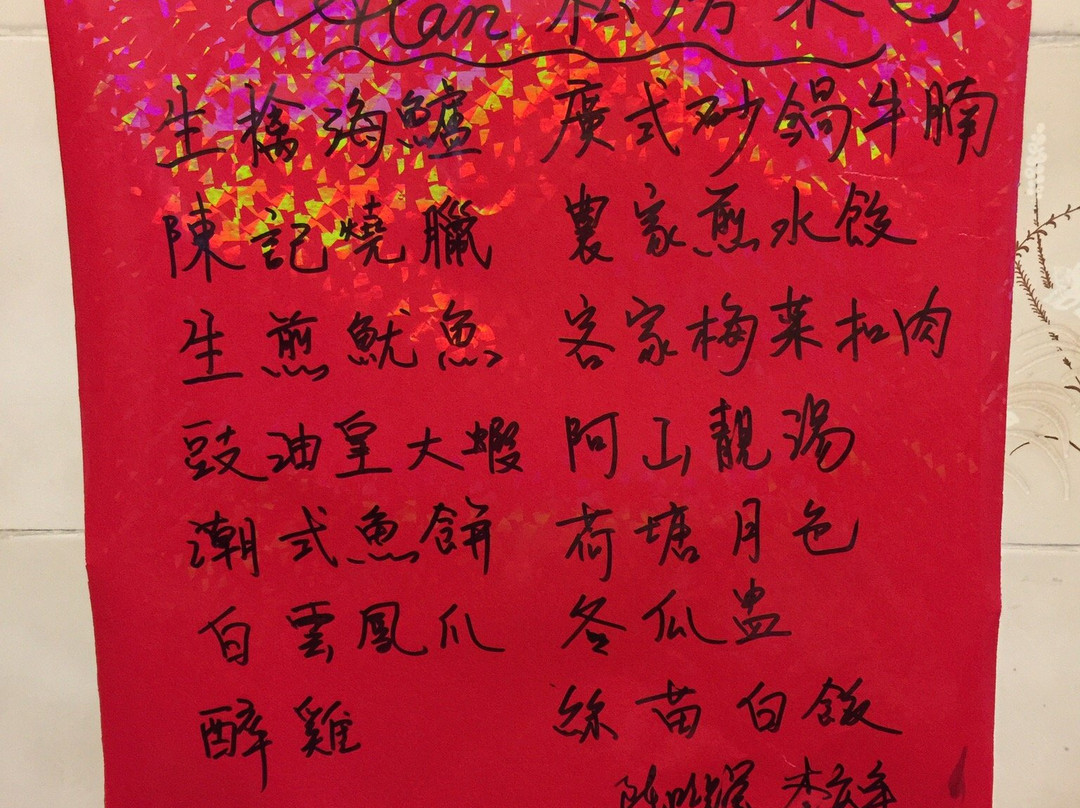 Alan 私房菜
生擒海鱸 廣式砂鍋牛腩
陳記燒臘 農家煎水餃
生煎魷魚 客家梅菜扣肉
豉油皇大蝦 阿山靚湯
潮式魚餅 荷塘月色
白雲鳳爪 冬瓜盅
醉雞 絲苗白飯